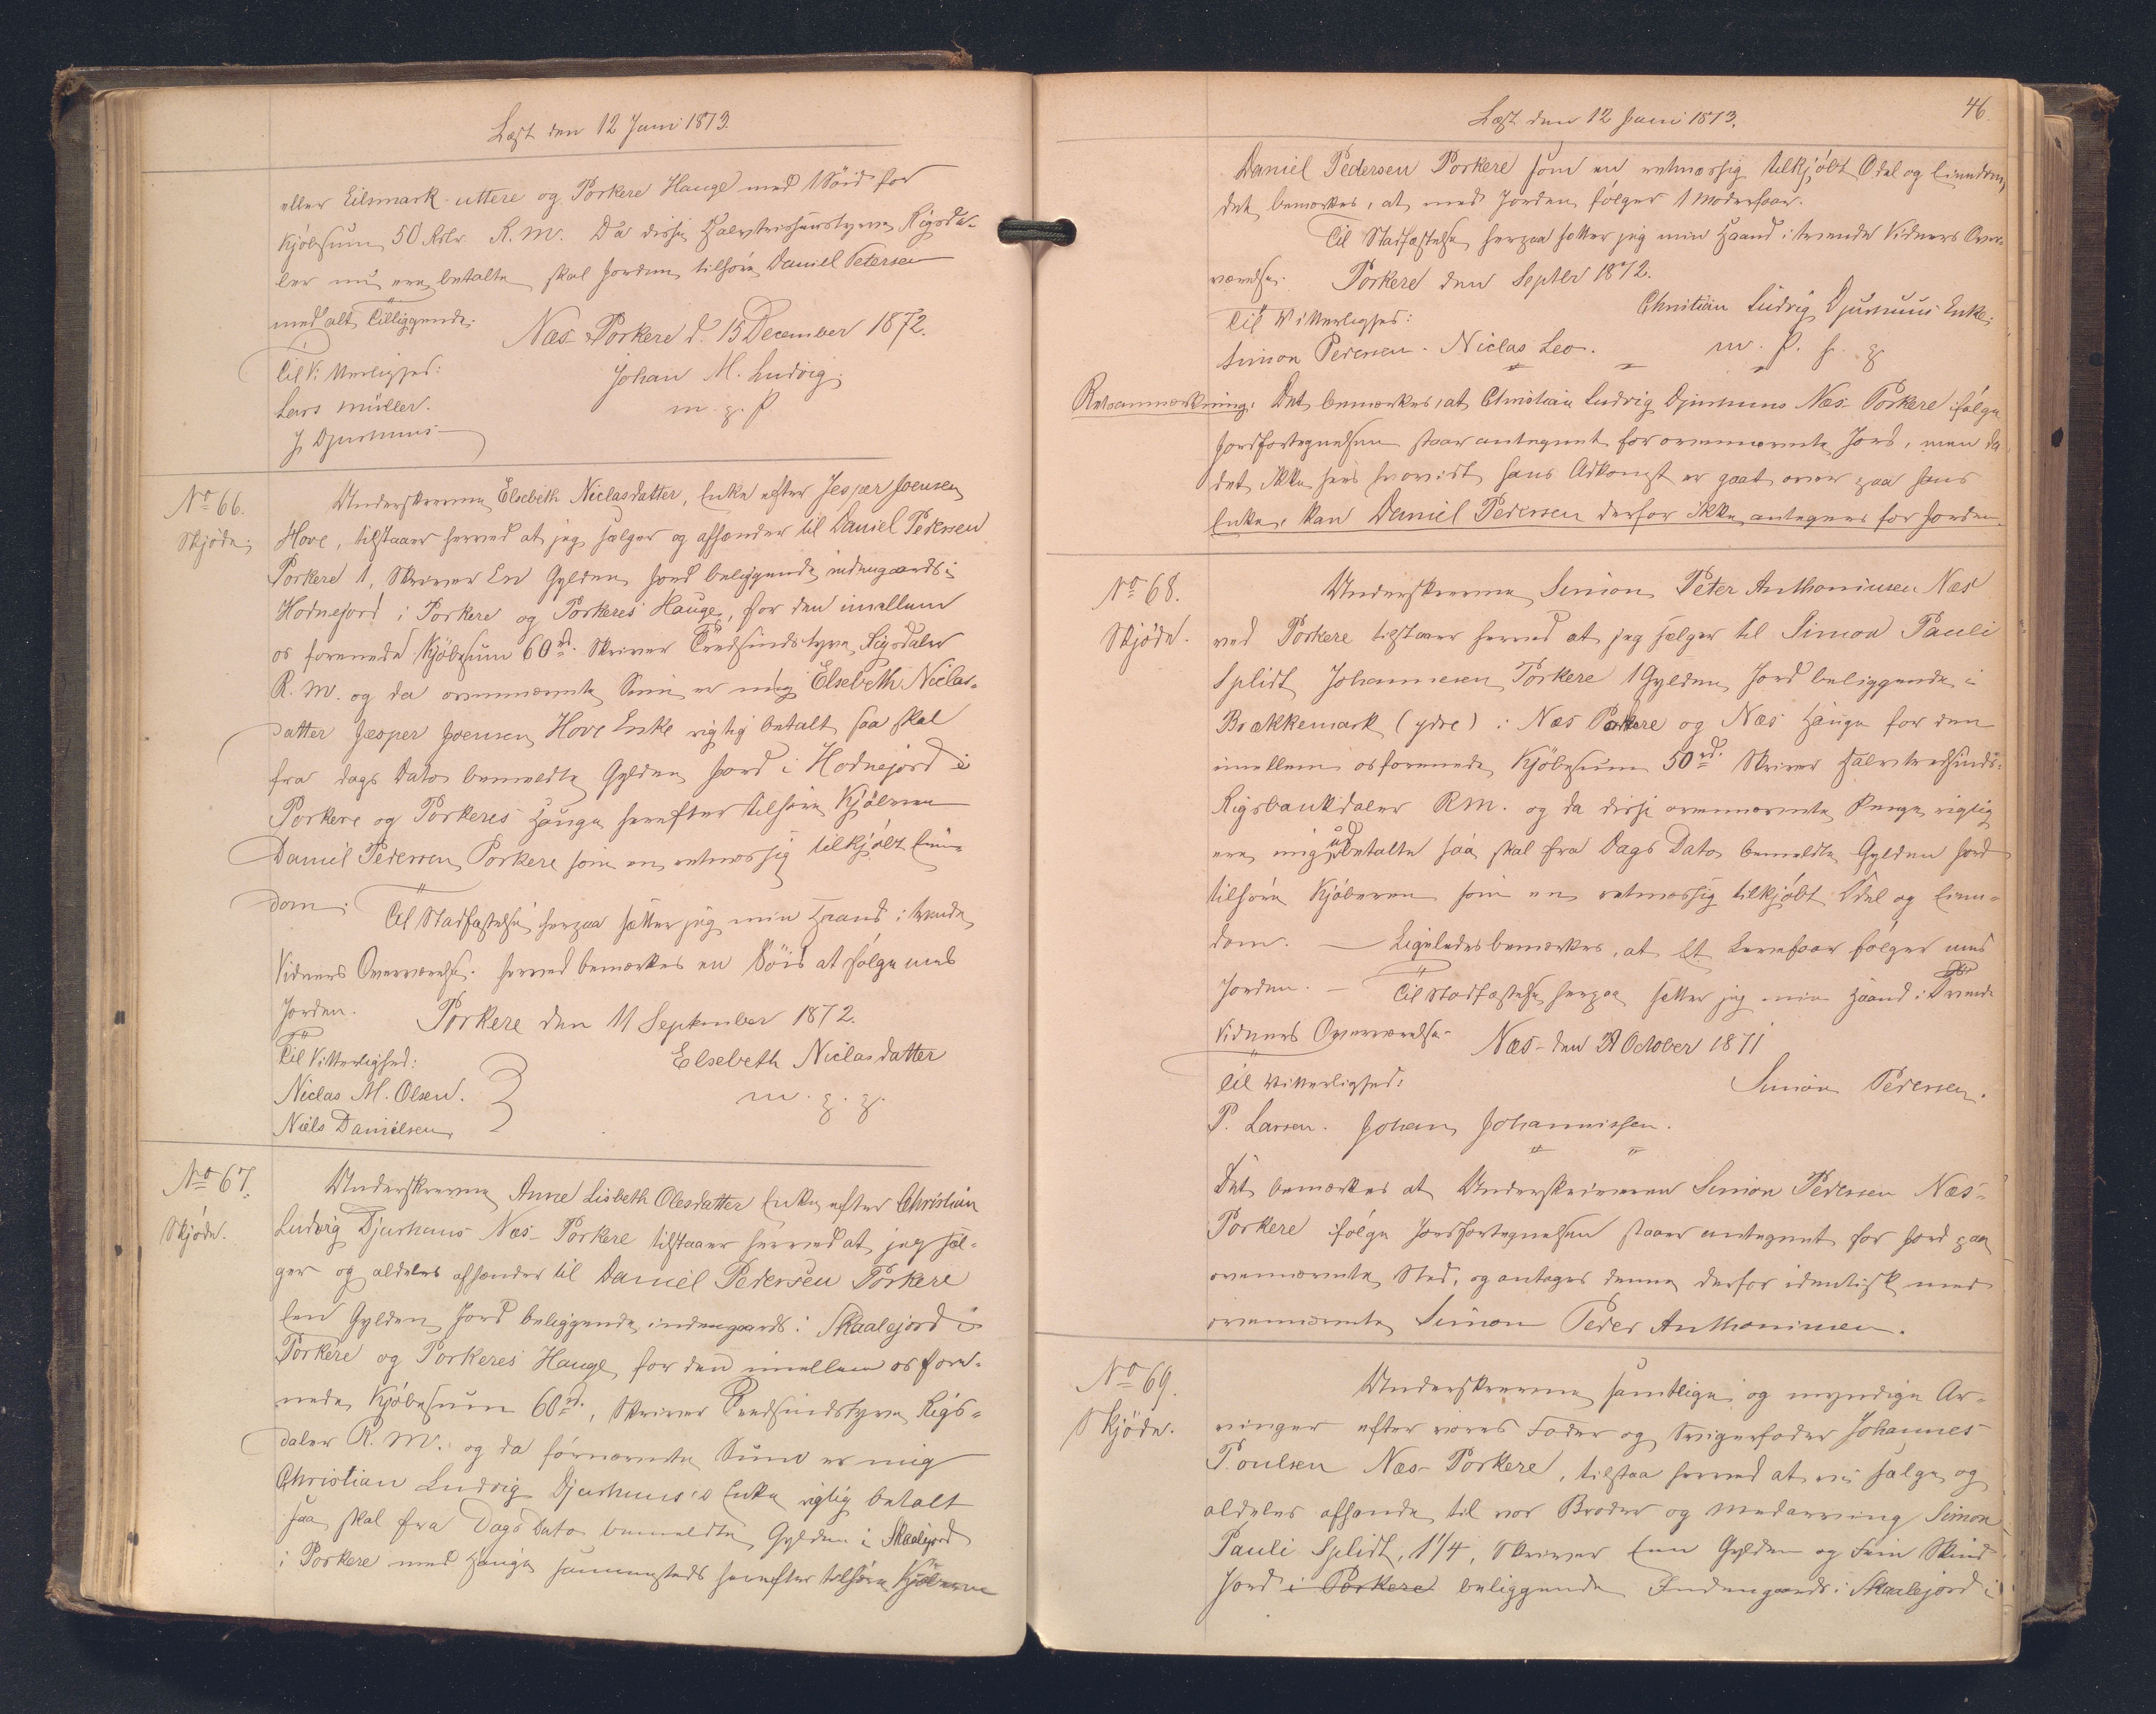 Læst den 12 Juni 1873.
eller Eilsmark uttere og Porkere Hauge med 1 Söid for
Kjöbesum 50 Rdlr. R. M. Da disse Halvtresindstyve Rigsda-
ler nu ere betalte skal Jorden tilhöre Daniel Petersen
med alt Tilliggende.
Næs Porkere d. 15 December 1872.
Til Vitterlighed:
Johan M. Ludvig
Lars Müller.
m. p. P
J. Djurhuus
No 66.
Skjöde.
Underskrevne Elsebeth Niclasdatter, Enke efter Jesper Joensen
Hove, tilstaaer herved at jeg sælger og afhænder til Daniel Pedersen
Porkere 1, Skriver En Gylden Jord beliggende indengaards i
Hodnejord i Porkere og Porkeres Hauge, for den imellem
os forenede Kjöbesum 60 rd. Skriver Tredsindstyve Rigsdaler
R. M. og da ovennævnte Sum er mig Elsebeth Niclas-
datter Jesper Joensen Hove Enke rigtig betalt saa skal
fra dags Dato bemeldte Gylden Jord i Hodnejord i
Porkere og Porkeres Hauge herefter tilhöre Kjöberen
Daniel Pedersen Porkere som en retmæssig tilkjöbt Eien-
dom. Til Stadfæstelse herpaa sætter jeg min Haand i tvende
Vidners Overværelse. Herved bemærkes en Söid at fölge med
Jorden. Porkere den 11 September 1872.
Til Vitterlighed:
Elsebeth Niclasdatter
Niclas M. Olsen.
m. p. p.
Niels Danielsen
No 67.
Skjöde.
Underskrevne Anne Lisbeth Olesdatter Enke efter Christian
Ludvig Djurhuus Næs-Porkere tilstaaer herved at jeg sæl-
ger og aldeles afhænder til Daniel Pedersen Porkere
een Gylden Jord beliggende indengaards i Skaalejord i
Porkere og Porkeres Hauge for den imellem os fore-
nede Kjöbesum 60 rd., Skriver Tredsindstyve Rigs-
daler R. M. og da fornævnte Sum er mig
Christian Ludvig Djurhuus's Enke rigtig betalt
saa skal fra Dags Dato bemeldte Gylden i Skaalejord
i Porkere med Hauge sammesteds herefter tilhöre Kjöberen
Læst den 12 Juni 1873.
46.
Daniel Pedersen Porkere som en retmæssig tilkjöbt Odel og Eiendom,
det bemærkes, at med Jorden fölger 1 Moderfaar.
Til Stadfæstelse herpaa sætter jeg min Haand i tvende Vidners Over-
værelse. Porkere den Septbr 1872.
Til Vitterlighed:
Christian Ludvig Djurhuus Enke
Simon Pedersen. Niclas Leo.
m. P. p.
Retsanmærkning: Det bemærkes, at Christian Ludvig Djurhuus Næs-Porkere ifölge
Jordfortegnelsen staar antegnet for ovennævnte Jord, men da
det ikke sees hvorvidt hans Adkomst er gaaet over paa hans
Enke, kan Daniel Pedersen derfor ikke antegnes for Jorden.
No 68.
Skjöde.
Underskrevne Simon Peter Anthoniusen Næs
ved Porkere tilstaaer herved at jeg sælger til Simon Pauli
Splidt Johannesen Porkere 1 Gylden Jord beliggende i
Brækkemark (ydre) i Næs Porkere og Næs Hauge for den
imellem os forenede Kjöbesum 50 rd. Skriver Halvtredsinds-
Rigsbankdaler RM. og da disse ovennævnte Penge rigtig
ere mig udbetalte saa skal fra Dags Dato bemeldte Gylden Jord
tilhöre Kjöberen som en retmæssig tilkjöbt Odel og Eien-
dom. — Ligeledes bemærkes, at Et Levefaar fölger med
Jorden. — Til Stadfæstelse herpaa sætter jeg min Haand i Tvende
Vidners Overværelse. Næs den 21 October 1871
Til Vitterlighed:
Simon Pedersen.
P. Larsen. Johan Johannissen.
Det bemærkes at Underskriveren Simon Pedersen Næs-
Porkere ifölge Jordfortegnelsen staaer antegnet for Jord paa
ovennævnte Sted, og antages denne derfor identisk med
ovennævnte Simon Peder Anthoniusen.
No 69.
Skjöde.
Underskrevne samtlige og myndige Ar-
vinger efter vores Fader og Svigerfader Johannes
Poulsen Næs-Porkere, tilstaa herved at vi sælge og
aldeles afhænde til vor Broder og Medarving Simon
Pauli Splidt, 1 1/4, Skriver Een Gylden og Fem Skind
Jord i Porkere beliggende Indengaards i Skaalejord i